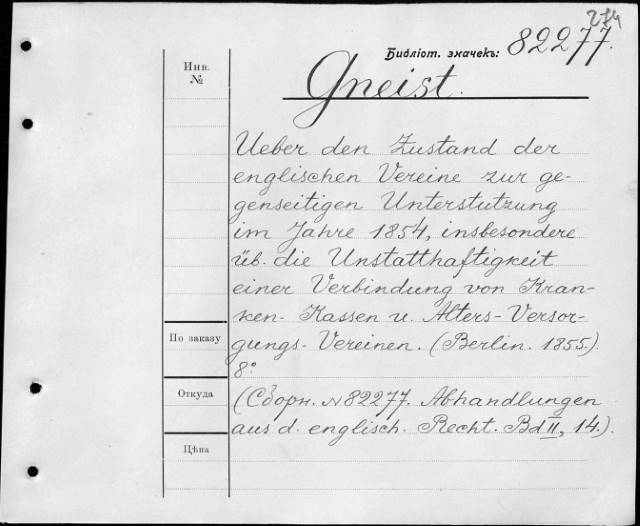 274
Библіот. значекъ: 82277.
Инв.
№
Gneist.
Ueber den Zustand der
englischen Vereine zur ge-
genseitigen Unterstutzung
im Jahre 1854, insbesondere
üb. die Unstatthaftigkeit
einer Verbindung von Kran-
ken- Kassen u. Alters- Versor-
По заказу
gungs- Vereinen. (Berlin. 1855.)
8°
Откуда
(Сборн. № 82277. Abhandlungen
aus d. englisch. Recht. Bd II, 14.).
Цѣна